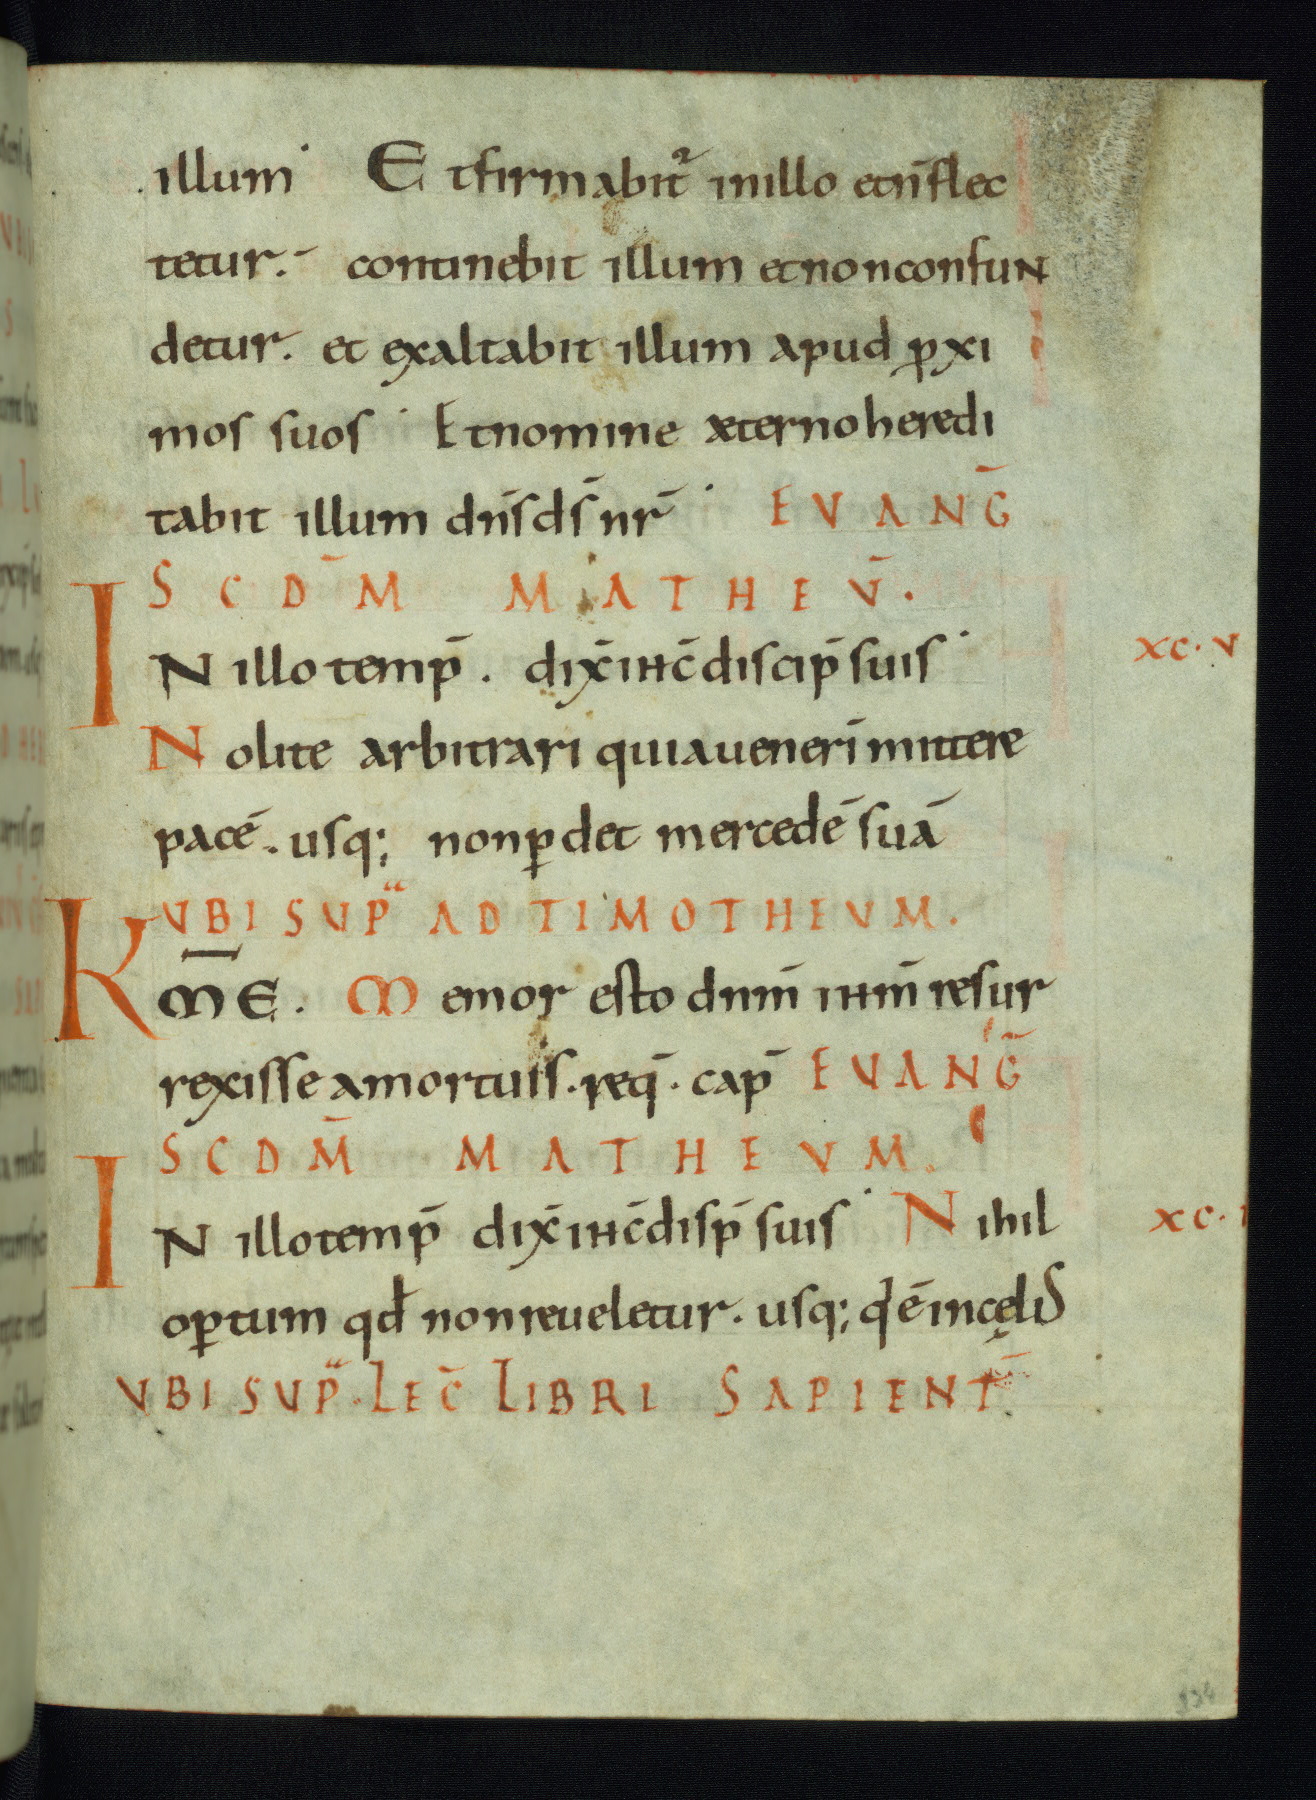 illum · Et firmabit᷑ in illo et n̄ flec
tetur. continebit illum et non confun
detur. et exaltabit illum apud ꝓxi
mos suos · Et nomine æterno heredi
tabit illum dn̄s ds̄ nr̄ · EVANḠ
SCDM̄ MATHEV̄.
IN illo temp̄. dix̄ ihc̄ discip̄ suis ·
xc·v
Nolite arbitrari quia ueneri mittere
pacē. usq; non ꝑdet mercedē suā
VBI SUPᵃ AD TIMOTHEVM.
K̄ME. Memor esto dnm̄ ihm̄ resur
rexisse a mortuis. req̄. cap̄ EVANḠ
SCDM̄ MATHEVM.
IN illo temp̄ dix̄ ihc̄ disp̄ suis · Nihil
xc·
oꝑtum qđ non reueletur. usq; q̇ ē in cęlis
VBI SUPᵃ. LEC̄ LIBRI SAPIENT̄
134